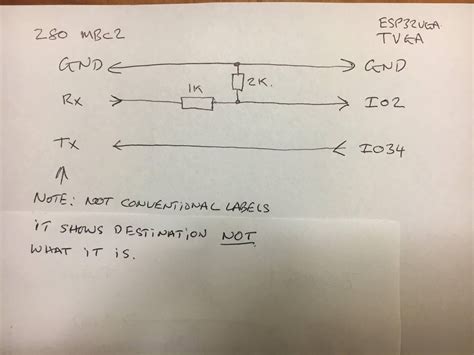 Z80 MBC2
ESP32VGA
TVGA
GND
GND
1K
2K.
Rx
IO2
Tx
IO34
NOTE: NOT CONVENTIONAL LABELS
iT SHOWS DESTINATION NOT
WHAT iT iS.